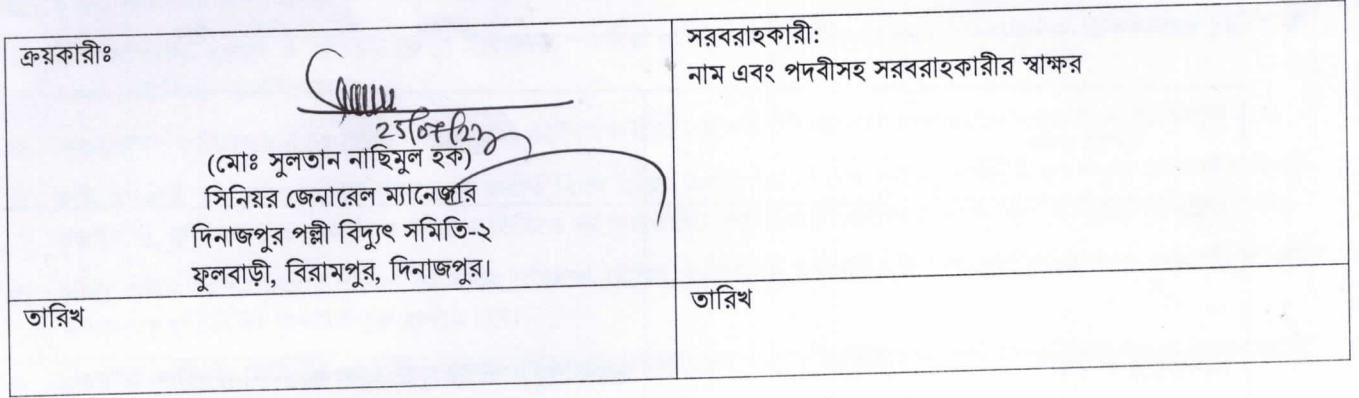 ক্রয়কারীঃ
25/07/23
(মোঃ সুলতান নাছিমুল হক)
সিনিয়র জেনারেল ম্যানেজার
দিনাজপুর পল্লী বিদ্যুৎ সমিতি-২
ফুলবাড়ী, বিরামপুর, দিনাজপুর।
সরবরাহকারী:
নাম এবং পদবীসহ সরবরাহকারীর স্বাক্ষর
তারিখ
তারিখ